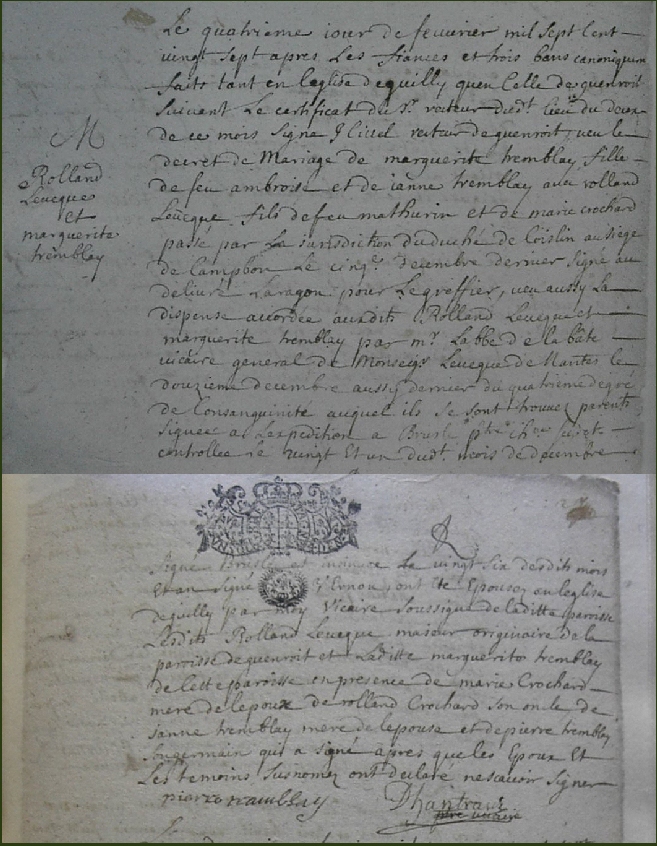 Le quatrieme iour de feuurier mil sept Cent
vingt sept apres Les fiances et trois bans canoniquem
faits tant en leglise dequilly quen Celle de guenroit
suiuant Le certificat du sr recteur dudt lieu du deux
de ce mois signé recteur de guenroit, ueu le
decret de Mariage de marguerite tremblay fille
de feu ambroise et de ianne tremblay auec rolland
Leueque fils de feu mathurin et de marie crochard
passé par La iurisdiction duduché de Coislin au siege
de Campbon Le cinqe decembre dernier signé au
deliuré Laragon pour Le greffier, ueu aussy La
dispense accordée auxdits Rolland Leueque et
marguerite tremblay par mr Labbé de la bate
uicaire general de Monseigr Leueque de Nantes le
douzieme decembre aussy dernier du quatrieme degré
de Consanguinité auquel ils se sont trouuez parents
signee a Lexpedition a Brusle ptre
controllee le vingt Et un dudt mois de decembre
M
Rolland
Leueque
et
marguerite
tremblay
signé Brusle et insinuée La vingt six desdits mois
et an signé ont été Epousez en leglise
dequilly par moy Vicaire soussigné de laditte paroisse
Lesdits Rolland Leueque maieur originaire de la
paroisse de guenroit et Laditte marguerite tremblay
de Cette paroisse en presence de marie Crochard
mere de lepoux de rolland Crochard son oncle de
ianne tremblay mere de lepouse et de pierre tremblay
son germain qui a signé apres que les Epoux Et
Les temoins susnomez ont declaré ne scauoir signer
pierre tramblay
Dhantraux
ptre uicaire